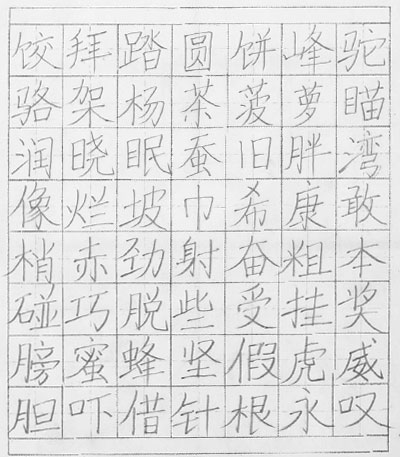 饺拜踏圆饼峰驼
骆架杨茶菠萝瞄
润晓眠蚕旧胖湾
像烂坡巾希康敢
梢赤劲射奋粗本
碰巧脱些受挂奖
膀蜜蜂坚假虎威
胆吓借针根永叹